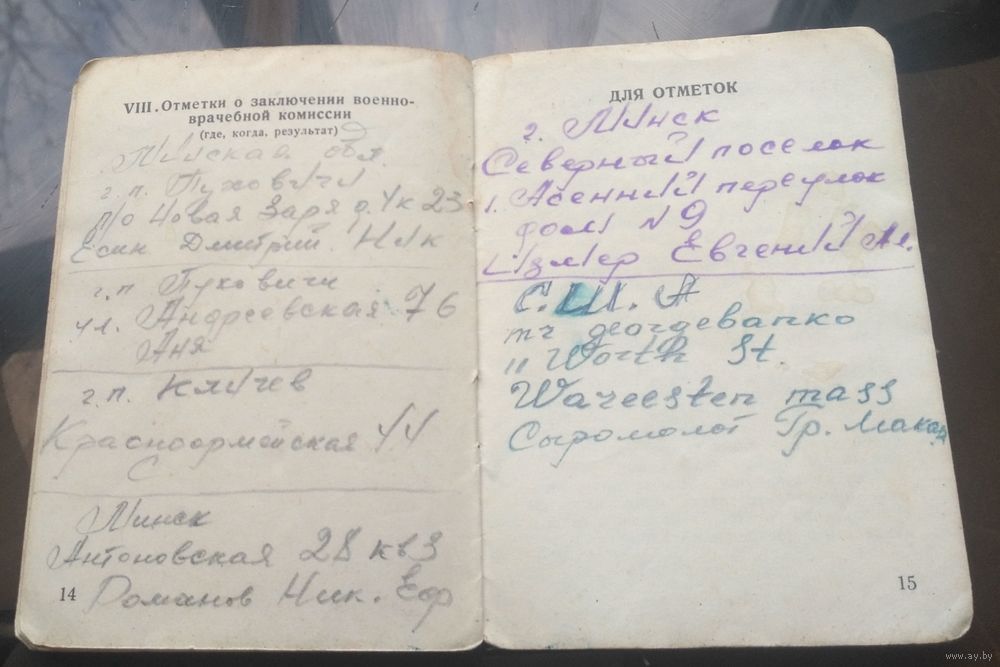 VIII. Отметки о заключении военно-
врачебной комиссии
(где, когда, результат)
Минская обл.
г. п. Пуховичи
п/о Новая Заря д. 4 к 23
Есин Дмитрий Ник
г. п Пуховичи
ул. Андреевская 76
Аня
г. п. Кличев
Красноармейская 44
С
Минск
Антоновская 28 кв 3
Романов Ник. Еф
14
ДЛЯ ОТМЕТОК
г. Минск
Северный поселок
1. Асенний переулок
дом № 9
Измер Евгений Ал.
С. Ш. А
mr georgebanko
11 Worth St.
Warcesten mass
Сыромолот Гр. Макар
15
www.ay.by